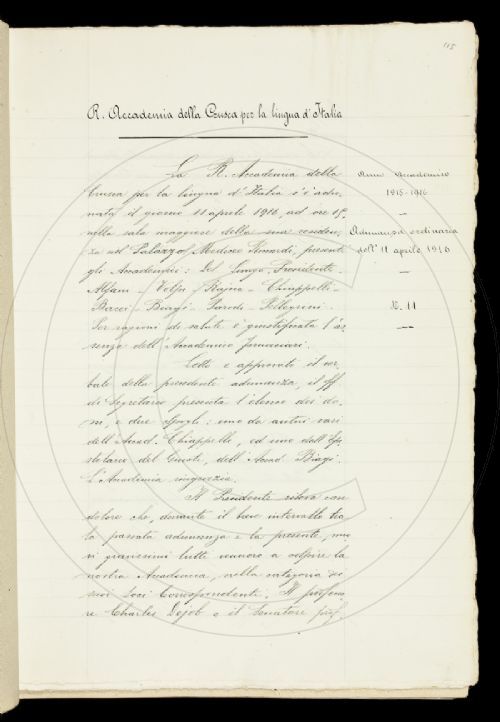 115
R. Accademia della Crusca per la lingua d'Italia
La R. Accademia della
Crusca per la lingua d'Italia s'è adu-
nata il giorno 11 aprile 1916, ad ore 15,
nella sala maggiore della sua residen-
za nel Palazzo Mediceo Riccardi, presenti
gli Accademici: Del Lungo, Presidente
Alfani - Volpi - Rajna - Chiappelli -
Bacci - Biagi - Parodi - Pellegrini.
Per ragioni di salute è giustificata l'as-
senza dell'Accademico
Anno Accademico
1915-1916
Adunanza ordinaria
dell'11 aprile 1916
N. 11
Letto e approvato il ver-
bale della precedente adunanza, il ff.
di Segretario presenta l'elenco dei do-
ni, e due spogli: uno da autori vari
dell'Accad. Chiappelli, ed uno dall'Epi-
stolario del Giusti, dell'Accad. Biagi.
L'Accademia ringrazia.
Il Presidente rileva con
dolore che, durante il breve intervallo tra
la passata adunanza e la presente, nuo-
vi gravissimi lutti vennero a colpire la
nostra Accademia, nella categoria dei
suoi Soci Corrispondenti. Il professo-
re Charles Dejob e il Senatore prof.